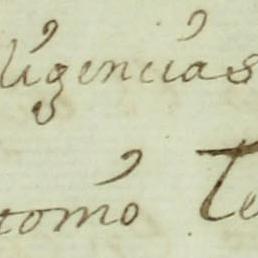 ligencias
tomó Te